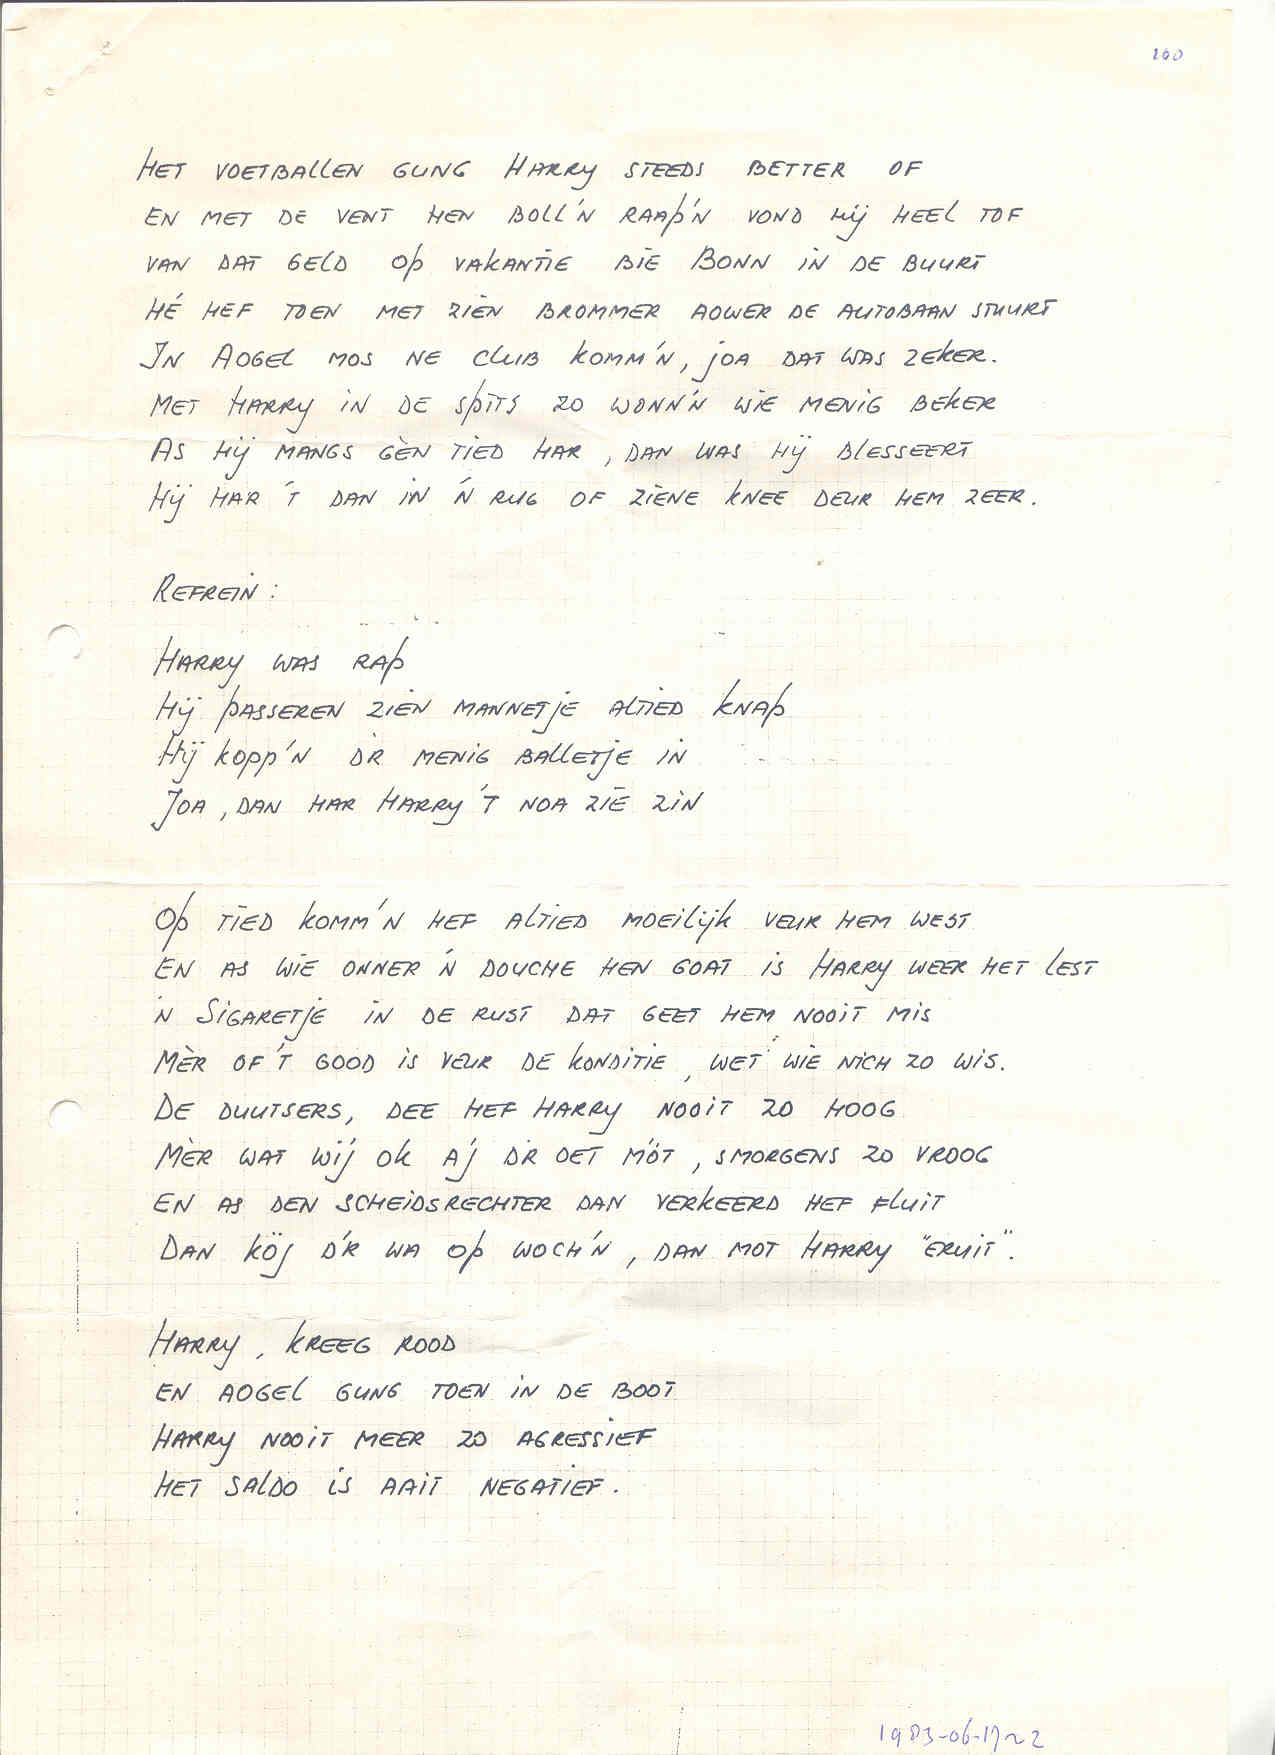 200
Het voetballen gung Harry steeds better of
en met de vent hen boll'n raap'n vond hij heel tof
van dat geld op vakantie bie Bonn in de buurt
Hé hef toen met zièn brommer aower de autobaan stuurt
In Aogel mos ne club komm'n, joa dat was zeker.
Met Harry in de spits zo wonn'n wie menig beker
As hij mangs gèn tied har, dan was hij blesseert
Hij har 't dan in 'n rug of ziene knee deur hem zeer.
Refrein:
Harry was rap
Hij passeren zien mannetje altied knap
Hij kopp'n d'r menig balletje in
Joa, dan har Harry 't noa zie zin
Op tied komm'n hef altied moeilijk veur hem west
en as wie onner 'n douche hen goat is Harry weer het lest
'n Sigaretje in de rust dat geet hem nooit mis
Mèr of 't good is veur de konditie, wet wie nich zo wis.
De duutsers, dee hef Harry nooit zo hoog
Mèr wat wi'j ok a'j d'r oet mo't, smorgens zo vroog
En as den scheidsrechter dan verkeerd hef fluit
Dan köj d'r wa op woch'n, dan mot Harry "eruit".
Harry, kreeg rood
en Aogel gung toen in de boot
Harry nooit meer zo agressief
Het saldo is aait negatief.
1983-06-17~2